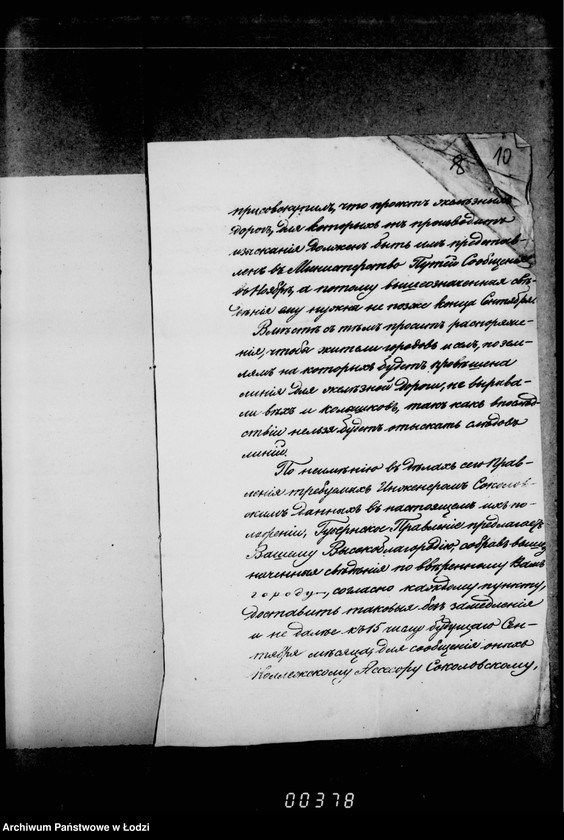 8 10
присовокупилъ, что проектъ желѣзныхъ
дорогъ, для которыхъ онъ производитъ
изысканія долженъ быть имъ представ-
ленъ въ Министерство Путей Сообщенія
въ Ноябрѣ, а потому вышеозначенныя свѣ-
дѣнія ему нужна не позже конца Сентября.
Вмѣстѣ съ тѣмъ проситъ распоряже-
нія, чтобы жители городовъ и селъ, по зем-
лямъ на которыхъ будетъ провѣшена
линія для желѣзной дороги, не вырыва-
ли вѣхъ и колышковъ, такъ какъ впослѣд-
ствіи нельзя будетъ отыскать слѣдовъ
линіи.
По неимѣнію въ дѣлахъ сего Прав-
ленія требуемыхъ Инженеромъ Соколов-
скимъ данныхъ въ настоящемъ ихъ по-
ложеніи, Губернское Правленіе предлагаетъ
Вашему Высокоблагородію, собравъ вышеоз-
наченныя свѣдѣнія по ввѣренному Вамъ
городу, согласно каждому пункту,
доставить таковыя безъ замедленія
и не далѣе къ 15 числу будущаго Сен-
тября мѣсяца, для сообщенія оныхъ
Коллежскому Асессору Соколовскому,
00378
Archiwum Państwowe w Łodzi